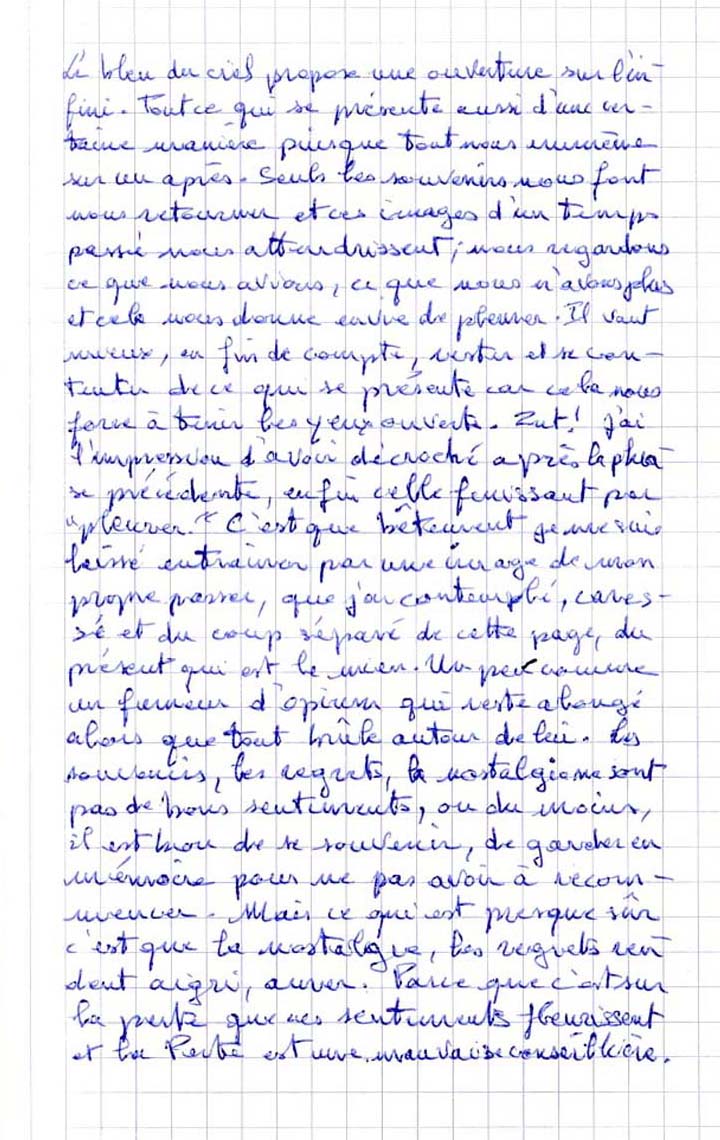 Le bleu du ciel propose une ouverture sur l'in-
fini. Tout ce qui se présente aussi d'une cer-
taine manière puisque tout nous emmène
sur un après. Seuls les souvenirs nous font
nous retourner et ces images d'un temps
passé nous attendrissent ; nous regardons
ce que nous avions, ce que nous n'avons plus
et cela nous donne envie de pleurer. Il vaut
mieux, en fin de compte, rester et se con-
tenter de ce qui se présente car cela nous
force à tenir les yeux ouverts. Zut ! j'ai
l'impression d'avoir décroché après la phra
se précédente, enfin celle finissant par
"pleurer." C'est que bêtement je me suis
laissé entraîner par une image de mon
propre passé, que j'ai contemplé, cares-
sé et du coup séparé de cette page, du
présent qui est le mien. Un peu comme
un fumeur d'opium qui reste allongé
alors que tout brûle autour de lui. Les
souvenirs, les regrets, la nostalgie ne sont
pas de bons sentiments, ou du moins,
il est bon de se souvenir, de garder en
mémoire pour ne pas avoir à recom-
mencer. Mais ce qui est presque sûr
c'est que la nostalgie, les regrets ren
dent aigri, amer. Parce que c'est sur
la perte que ces sentiments fleurissent
et la Perte est une mauvaise conseillère.